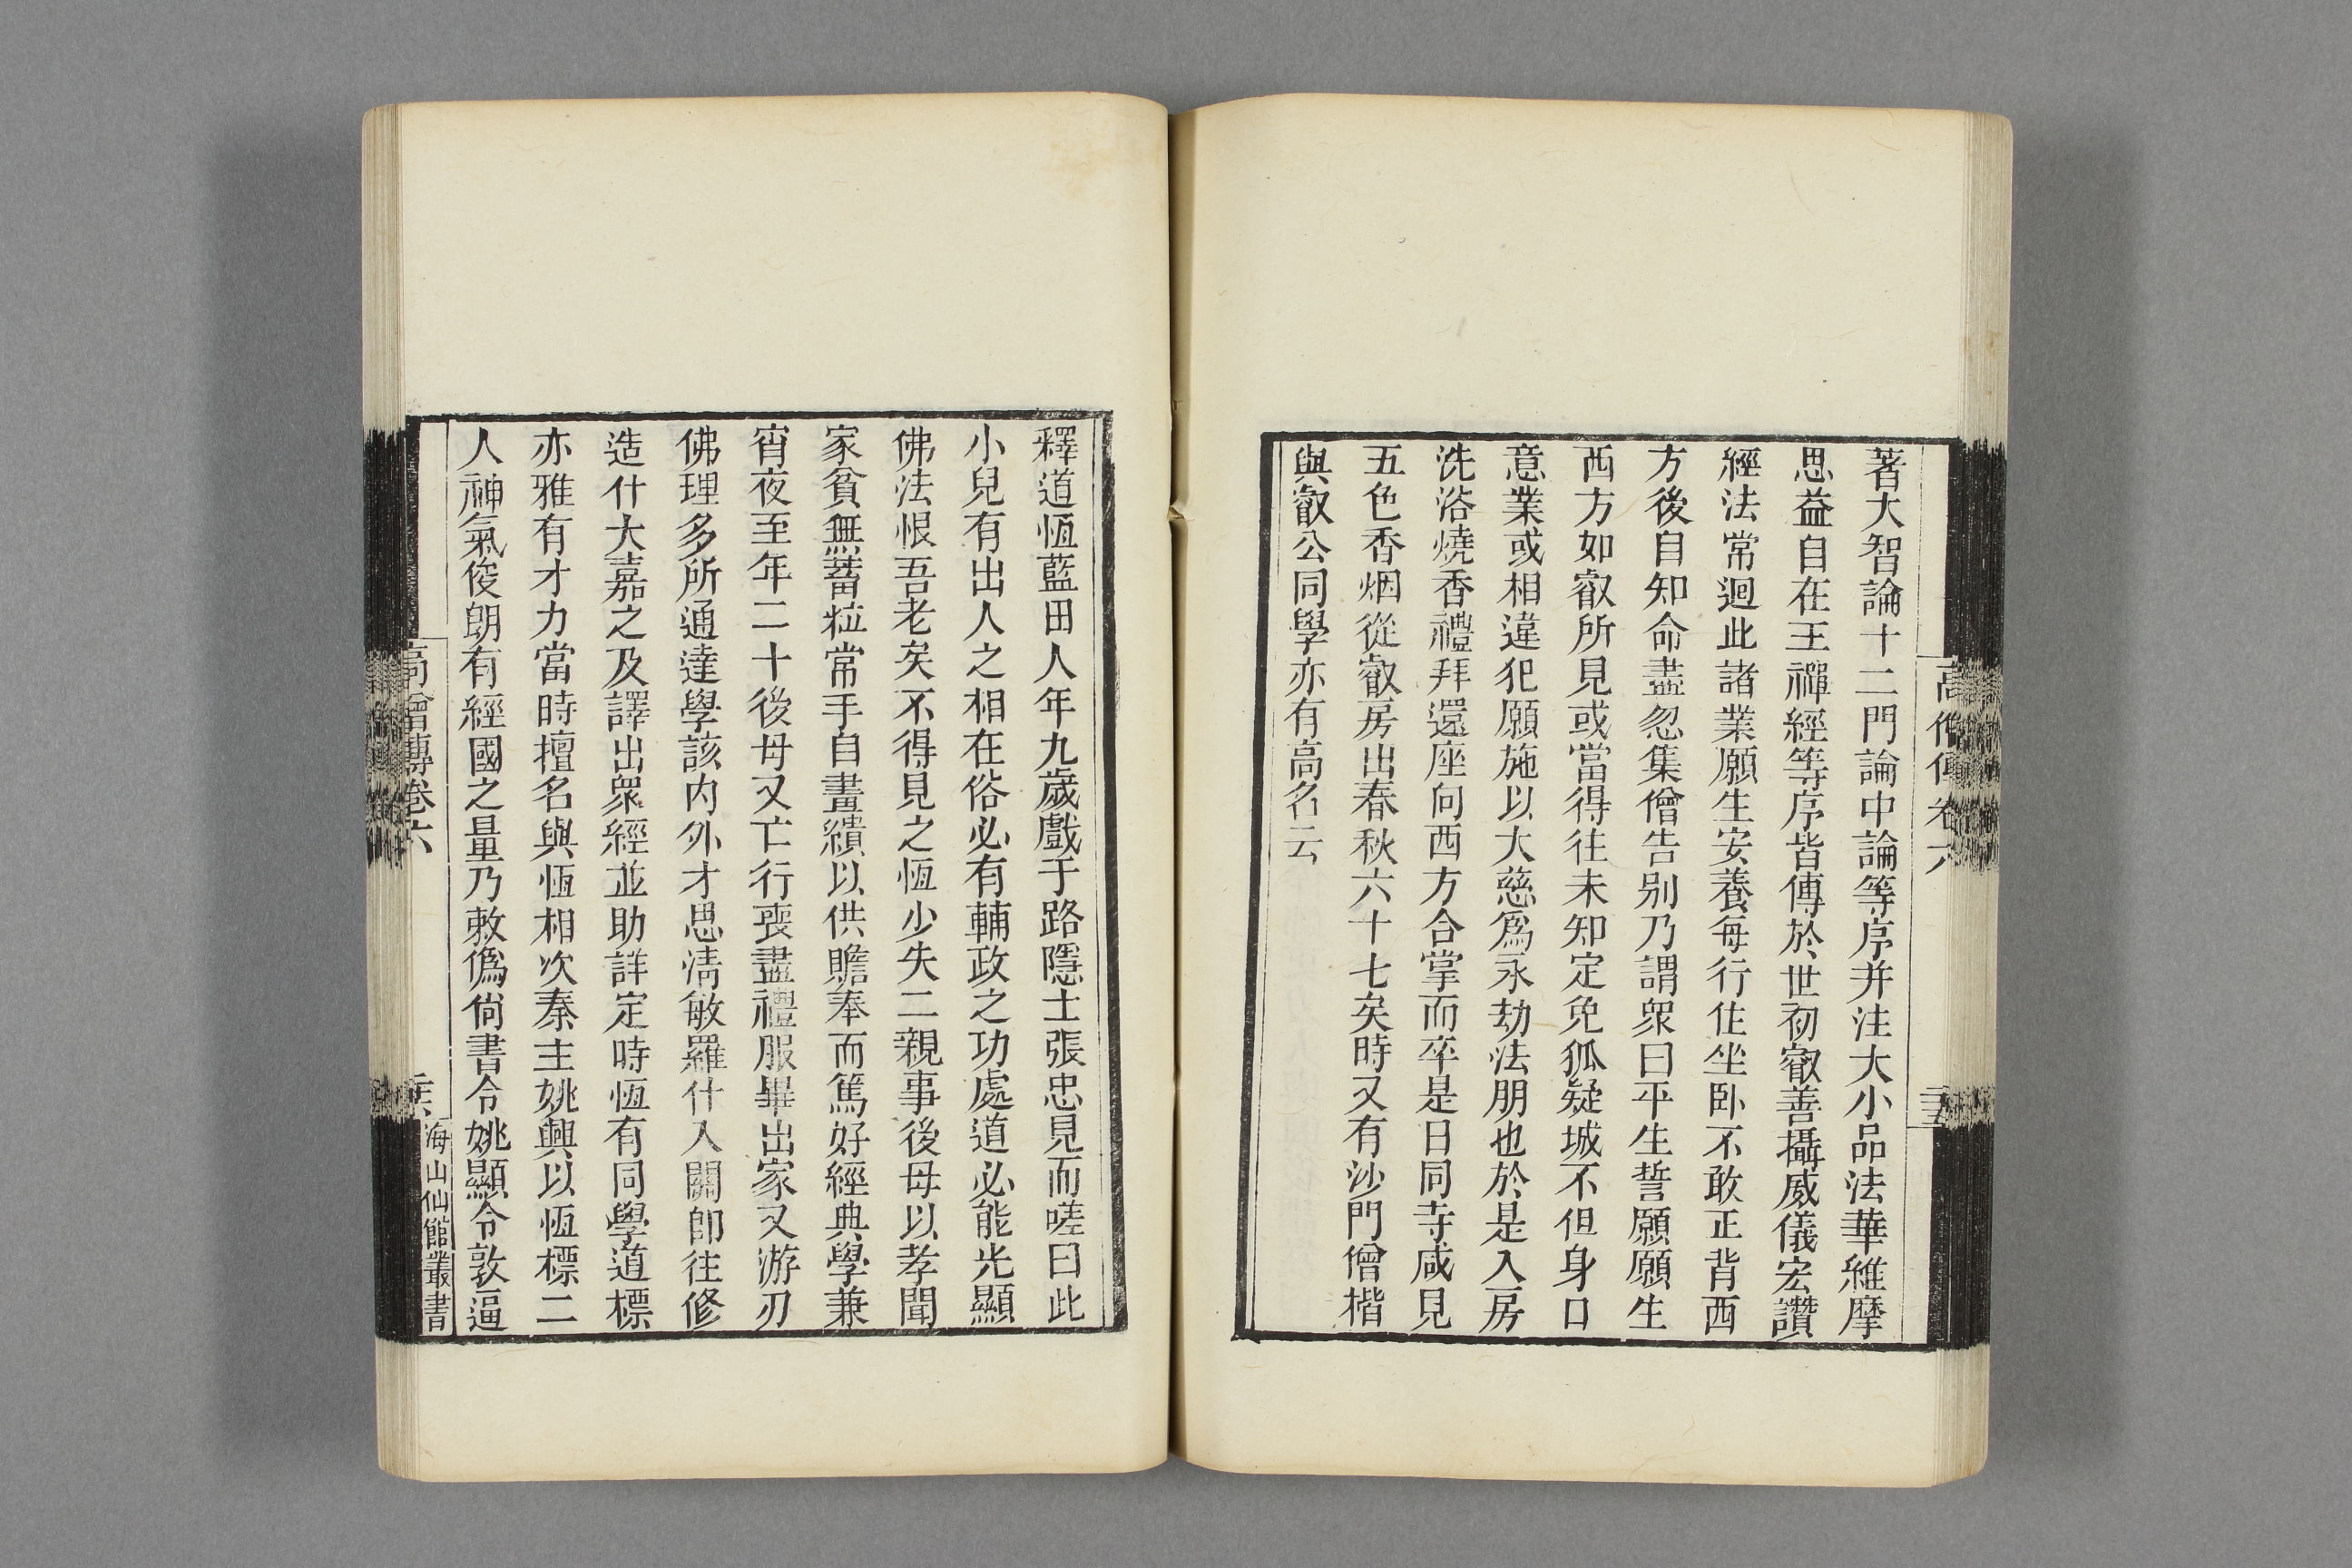 著大智論十二門論中論等序并注大小品法華維摩
思益自在王禪經等序皆傳於世初叡善攝威儀宏讚
經法常迴此諸業願生安養每行住坐臥不敢正背西
方後自知命盡忽集僧告别乃謂衆曰平生誓願願生
西方如叡所見或當得往未知定免狐疑城不但身口
意業或相違犯願施以大慈爲永劫法朋也於是入房
洗浴燒香禮拜還座向西方合掌而卒是日同寺咸見
五色香烟從叡房出春秋六十七矣時又有沙門僧楷
與叡公同學亦有高名云
高僧傳卷六
釋道恆藍田人年九歲戲于路隱士張忠見而嗟曰此
小兒有出人之相在俗必有輔政之功處道必能光顯
佛法恨吾老矣不得見之恆少失二親事後母以孝聞
家貧無蓄粒常手自畫繢以供贍奉而篤好經典學兼
宵夜至年二十後母又亡行喪盡禮服畢出家又游刃
佛理多所通達學該内外才思清敏羅什入關卽往修
造什大嘉之及譯出衆經並助詳定時恆有同學道標
亦雅有才力當時擅名與恆相次秦主姚興以恆標二
人神氣俊朗有經國之量乃敕僞尙書令姚顯令敦逼
高僧傳卷六
海山仙館叢書